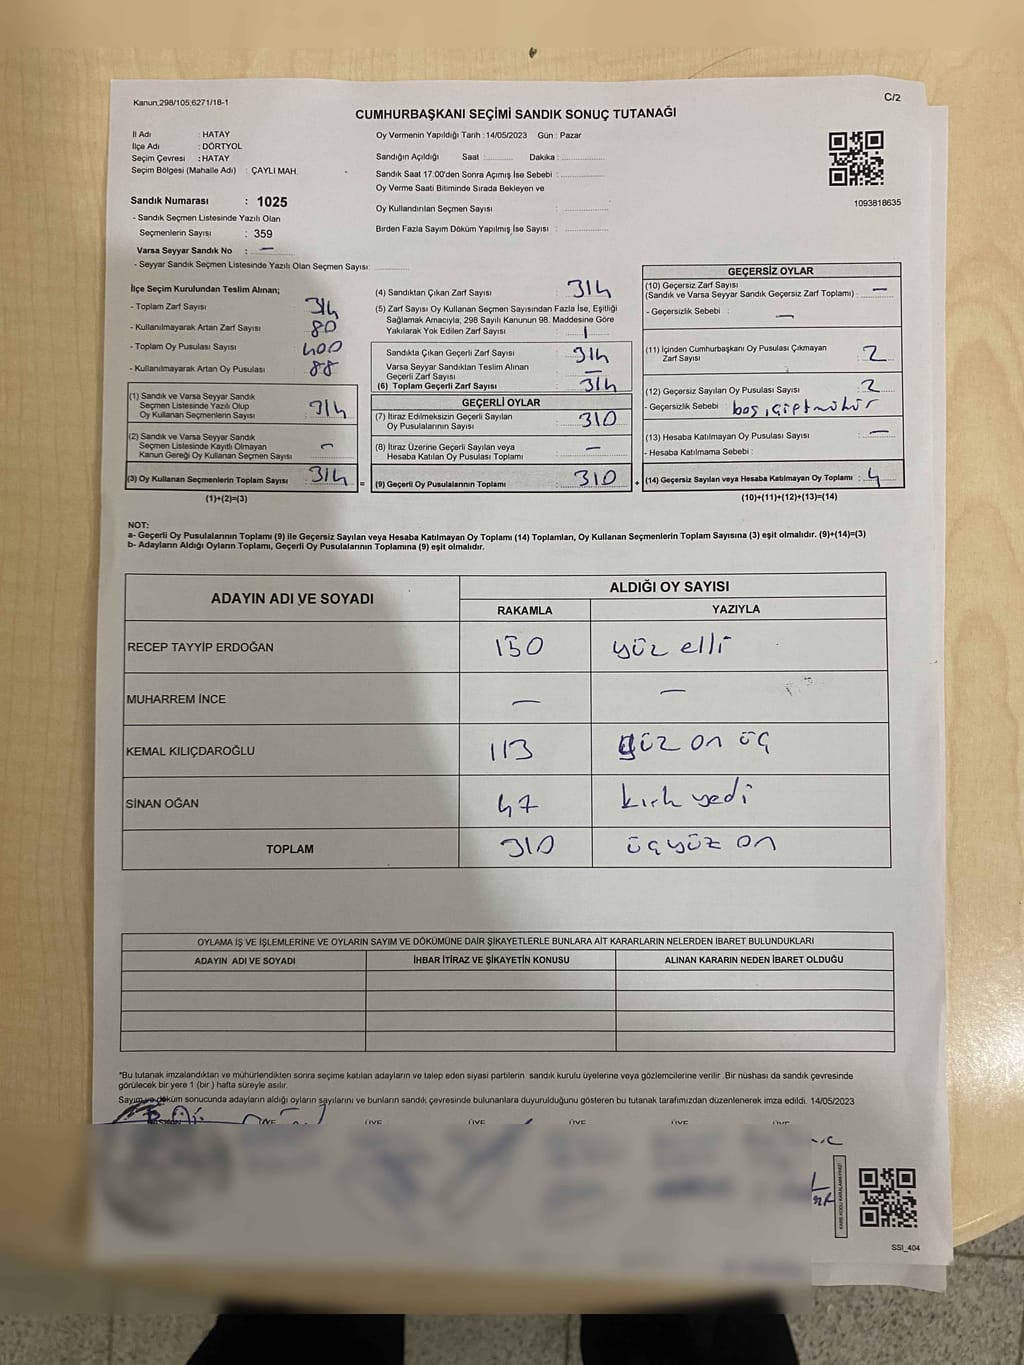 Kanun;298/105,6271/18-1
C/2
CUMHURBAŞKANI SEÇİMİ SANDIK SONUÇ TUTANAĞI
İl Adı : HATAY
İlçe Adı : DÖRTYOL
Seçim Çevresi : HATAY
Seçim Bölgesi (Mahalle Adı) : ÇAYLI MAH.
Sandık Numarası : 1025
- Sandık Seçmen Listesinde Yazılı Olan
Seçmenlerin Sayısı : 359
Varsa Seyyar Sandık No : —
- Seyyar Sandık Seçmen Listesinde Yazılı Olan Seçmen Sayısı: ............
Oy Vermenin Yapıldığı Tarih :14/05/2023 Gün : Pazar
Sandığın Açıldığı Saat :......... Dakika : ..............
Sandık Saat 17:00'den Sonra Açımış İse Sebebi : ..............
Oy Verme Saati Bitiminde Sırada Bekleyen ve
Oy Kullandırılan Seçmen Sayısı : ..............
Birden Fazla Sayım Döküm Yapılmış İse Sayısı : ..............
1093818635
İlçe Seçim Kurulundan Teslim Alınan;
- Toplam Zarf Sayısı
- Kullanılmayarak Artan Zarf Sayısı 80
- Toplam Oy Pusulası Sayısı 400
- Kullanılmayarak Artan Oy Pusulası 88
(1) Sandık ve Varsa Seyyar Sandık
Seçmen Listesinde Yazılı Olup
Oy Kullanan Seçmenlerin Sayısı 314
(2) Sandık ve Varsa Seyyar Sandık
Seçmen Listesinde Kayıtlı Olmayan
Kanun Gereği Oy Kullanan Seçmen Sayısı —
(3) Oy Kullanan Seçmenlerin Toplam Sayısı 314 =
(1)+(2)=(3)
(4) Sandıktan Çıkan Zarf Sayısı 314
(5) Zarf Sayısı Oy Kullanan Seçmen Sayısından Fazla İse, Eşitliği
Sağlamak Amacıyla; 298 Sayılı Kanunun 98. Maddesine Göre
Yakılarak Yok Edilen Zarf Sayısı
Sandıkta Çıkan Geçerli Zarf Sayısı 314
Varsa Seyyar Sandıktan Teslim Alınan
Geçerli Zarf Sayısı —
(6) Toplam Geçerli Zarf Sayısı 314
GEÇERLİ OYLAR
(7) İtiraz Edilmeksizin Geçerli Sayılan
Oy Pusulalarının Sayısı 310
(8) İtiraz Üzerine Geçerli Sayılan veya
Hesaba Katılan Oy Pusulası Toplamı —
(9) Geçerli Oy Pusulalarının Toplamı 310 +
GEÇERSİZ OYLAR
(10) Geçersiz Zarf Sayısı
(Sandık ve Varsa Seyyar Sandık Geçersiz Zarf Toplamı) : —
- Geçersizlik Sebebi : —
(11) İçinden Cumhurbaşkanı Oy Pusulası Çıkmayan
Zarf Sayısı : 2
(12) Geçersiz Sayılan Oy Pusulası Sayısı : 2
- Geçersizlik Sebebi : boş, çift mühür
(13) Hesaba Katılmayan Oy Pusulası Sayısı : —
- Hesaba Katılmama Sebebi :
(14) Geçersiz Sayılan veya Hesaba Katılmayan Oy Toplamı : 4
(10)+(11)+(12)+(13)=(14)
NOT:
a- Geçerli Oy Pusulalarının Toplamı (9) ile Geçersiz Sayılan veya Hesaba Katılmayan Oy Toplamı (14) Toplamları, Oy Kullanan Seçmenlerin Toplam Sayısına (3) eşit olmalıdır. (9)+(14)=(3)
b- Adayların Aldığı Oyların Toplamı, Geçerli Oy Pusulalarının Toplamına (9) eşit olmalıdır.
ADAYIN ADI VE SOYADI
ALDIĞI OY SAYISI
RAKAMLA YAZIYLA
RECEP TAYYİP ERDOĞAN 150 yüz elli
MUHARREM İNCE — —
KEMAL KILIÇDAROĞLU 113 yüz on üç
SİNAN OĞAN 47 kırk yedi
TOPLAM 310 üçyüz on
OYLAMA İŞ VE İŞLEMLERİNE VE OYLARIN SAYIM VE DÖKÜMÜNE DAİR ŞİKAYETLERLE BUNLARA AİT KARARLARIN NELERDEN İBARET BULUNDUKLARI
ADAYIN ADI VE SOYADI İHBAR İTİRAZ VE ŞİKAYETİN KONUSU ALINAN KARARIN NEDEN İBARET OLDUĞU
*Bu tutanak imzalandıktan ve mühürlendikten sonra seçime katılan adayların ve talep eden siyasi partilerin sandık kurulu üyelerine veya gözlemcilerine verilir .Bir nüshası da sandık çevresinde
görülecek bir yere 1 (bir ) hafta süreyle asılır.
Sayım ve döküm sonucunda adayların aldığı oyların sayılarını ve bunların sandık çevresinde bulunanlara duyurulduğunu gösteren bu tutanak tarafımızdan düzenlenerek imza edildi. 14/05/2023
ÜYE ÜYE ÜYE ÜYE ÜYE
SSI_404